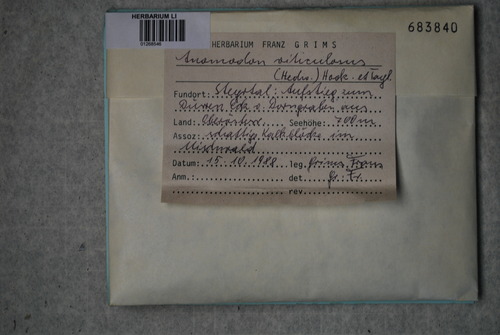 HERBARIUM LI
683840
HERBARIUM FRANZ GRIMS
Anomodon viticulosus
(Hedw.) Hook. et Tayl.
Fundort: Steyrtal: Aufstieg zum
Dürren Eck v. aus
Land: Oberösterr. Seehöhe: 700m
Assoz: schattige Kalkblöcke im
Mischwald
Datum: 15.10.1988 leg. Grims Franz
Anm.: det. Gr. Fr.
rev.